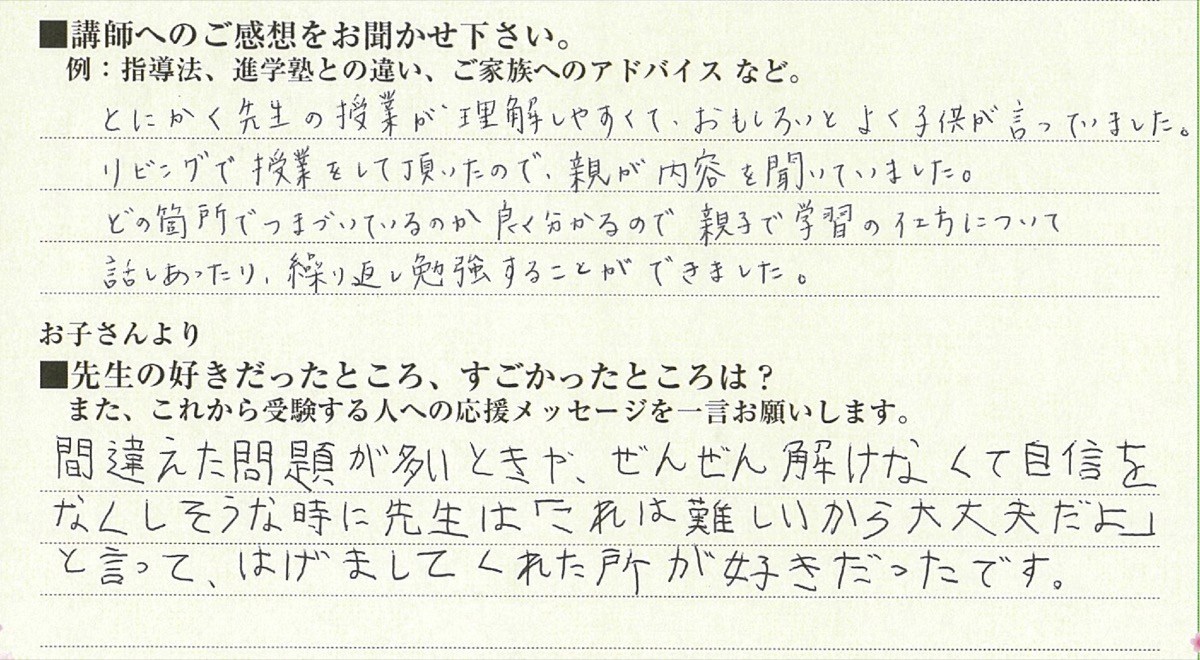 ■講師へのご感想をお聞かせ下さい。
例：指導法、進学塾との違い、ご家族へのアドバイス など。
とにかく先生の授業が理解しやすくて、おもしろいとよく子供が言っていました。
リビングで授業をして頂いたので、親が内容を聞いていました。
どの箇所でつまづいているのか良く分かるので親子で学習の仕方について
話しあったり、繰り返し勉強することができました。
お子さんより
■先生の好きだったところ、すごかったところは？
また、これから受験する人への応援メッセージを一言お願いします。
間違えた問題が多いときや、ぜんぜん解けなくて自信を
なくしそうな時に先生は「これは難しいから大丈夫だよ」
と言って、はげましてくれた所が好きだったです。